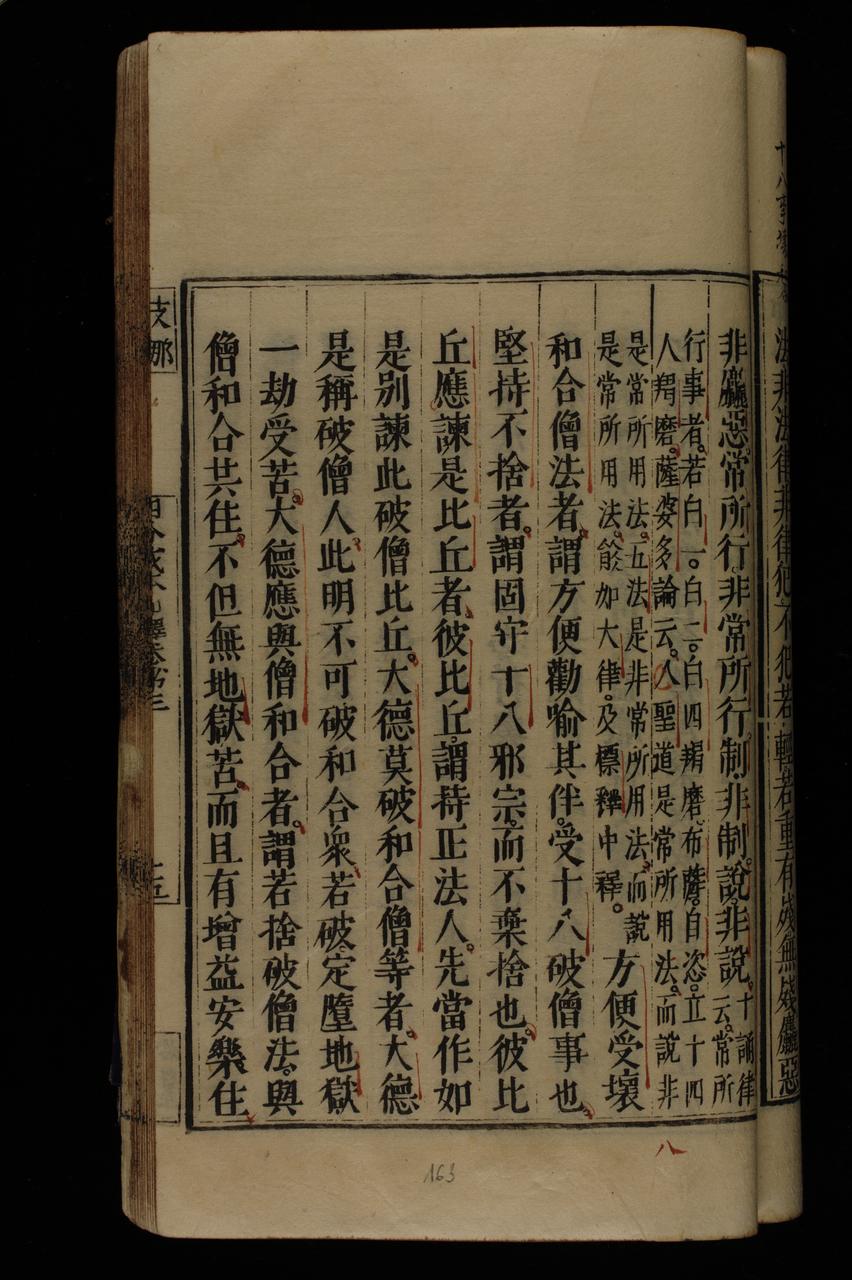 十八事
法非法律非律犯不犯若輕若重有殘無殘麤惡
非麤惡常所行非常所行制非制說非說十誦律
云常所
行事者若白一白二白四羯磨布薩自恣立十四
人羯磨薩婆多論云八聖道是常所用法而說非
是常所用法五法是非常所用法而說
是常所用法餘如大律及標釋中釋
方便受壞
和合僧法者謂方便勸喻其伴受十八破僧事也
堅持不捨者謂固守十八邪宗而不棄捨也彼比
丘應諫是比丘者彼比丘謂持正法人先當作如
是別諫此破僧比丘大德莫破和合僧等者大德
是稱破僧人此明不可破和合眾若破定墮地獄
一劫受苦大德應與僧和合者謂若捨破僧法與
僧和合共住不但無地獄苦而且有增益安樂住
支那
八
163